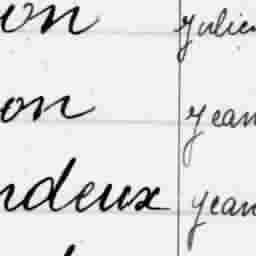 on Julien
on Jean
ndeux Jean